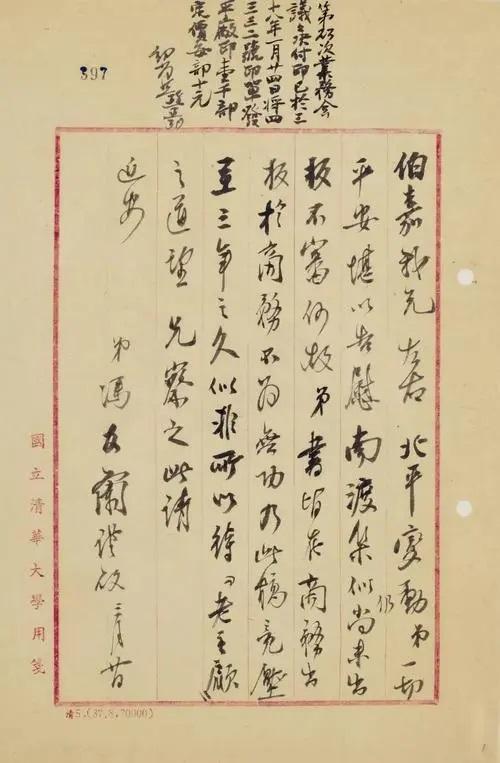 397
次業務會
議決付印已於三
十八年一月廿四日將四
三三二號印單發
平廠印壹千部
定價每部十元
伯嘉我兄左右北平變動弟仍一切
平安堪以告慰南渡集似尚未出
板不審何故弟書皆在商務出
板於商務不為無功乃此稿竟壓
至三年之久似非所以待“老主顧”
之道望兄察之此請
近安
弟馮友蘭謹啟
國立清華大學用箋
清5.(37.8.70000)